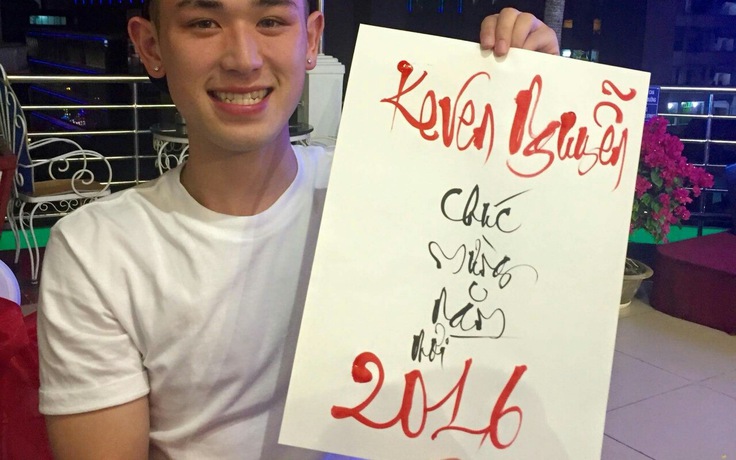 Keven Nguyễn
chúc
mừng
năm
mới
2016